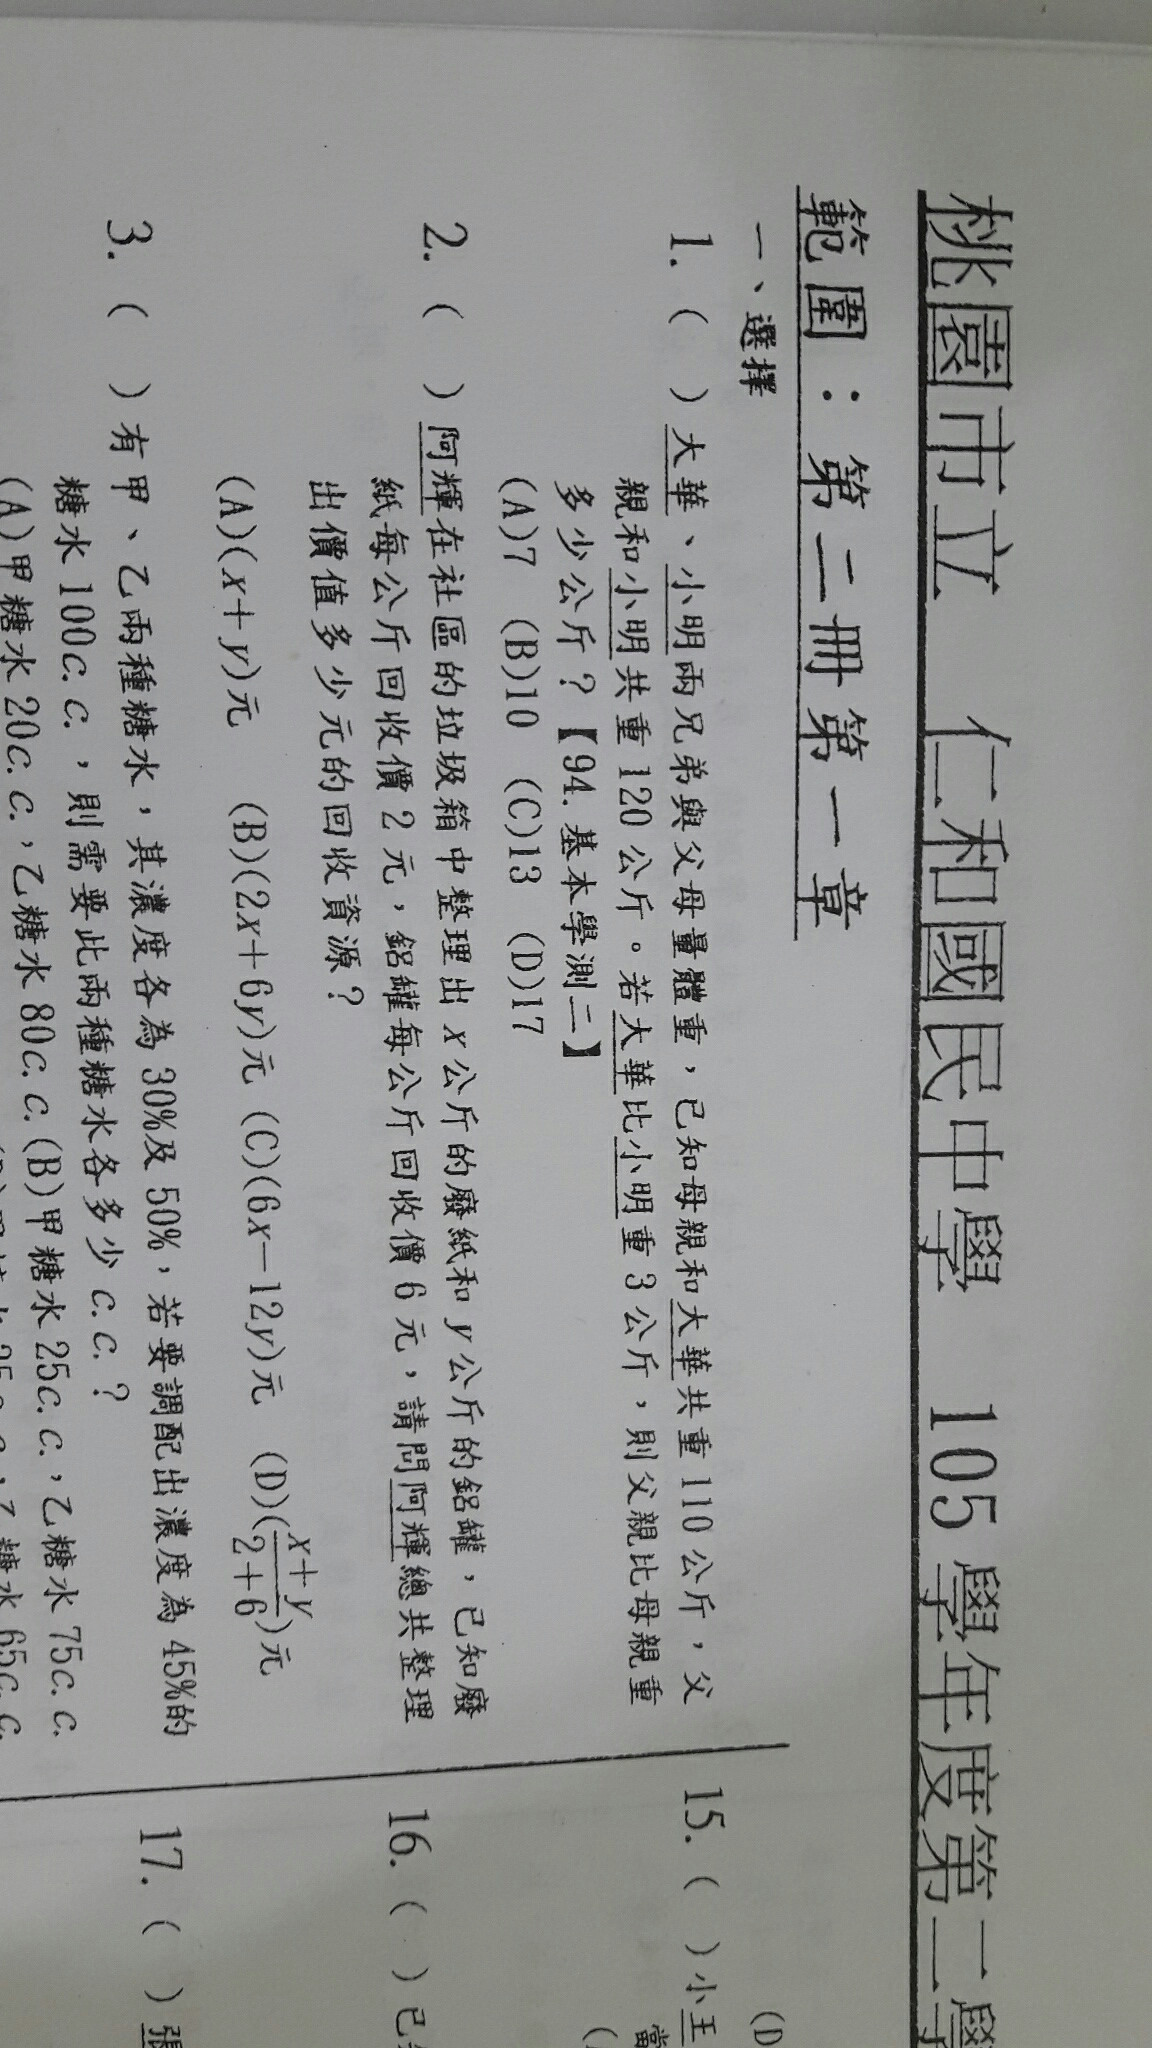 桃園市立 仁和國民中學 105學年度第二學
範圍：第二冊第一章
一、選擇
1. ( ) 大華、小明兩兄弟與父母量體重，已知母親和大華共重110公斤，父
親和小明共重120公斤。若大華比小明重3公斤，則父親比母親重
多少公斤？【94.基本學測二】
(A)7 (B)10 (C)13 (D)17
2. ( ) 阿輝在社區的垃圾箱中整理出x公斤的廢紙和y公斤的鋁罐，已知廢
紙每公斤回收價2元，鋁罐每公斤回收價6元，請問阿輝總共整理
出價值多少元的回收資源？
(A)(x+y)元 (B)(2x+6y)元 (C)(6x−12y)元 (D)(x+y/2+6)元
3. ( ) 有甲、乙兩種糖水，其濃度各為30%及50%，若要調配出濃度為45%的
糖水100c.c.，則需要此兩種糖水各多少c.c.？
(A)甲糖水20c.c.，乙糖水80c.c.(B)甲糖水25c.c.，乙糖水75c.c.
(D
15. ( ) 小王
當
16. ( ) 已
17. ( ) 張